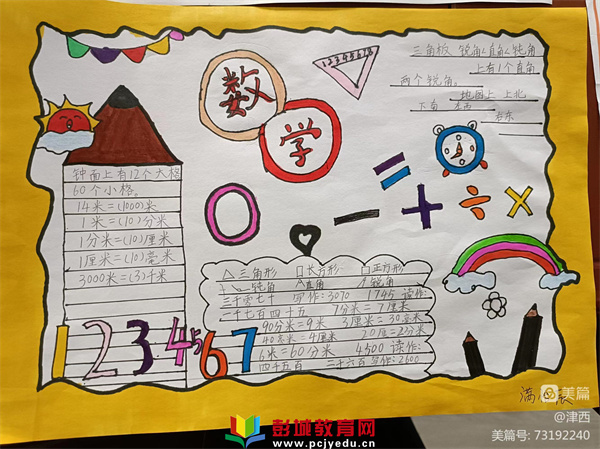 数
学
12345678
三角板 锐角<直角<钝角
上有1个直角
两个锐角。
地图上 上北
下南 左西
右东
钟面上有12个大格
60个小格。
14米=(1000)米
1米=(10)分米
1分米=(10)厘米
1厘米=(10)毫米
3000米=(3)千米
1234567
△三角形 口长方形 口正方形
钝角 直角 锐角
三千零七十 写作:3070 1745 读作:
一千七百四十五 7分米=7厘米
90分米=9米 3厘米=30毫米
40毫米=4厘米 20厘=2分米
6米=60分米 4500 读作:
四千五百 二千六百写作:2600
= + ÷ ×
满 辰
彭城教育网
www.pcjyedu.cn
美篇
@津西
美篇号: 73192240